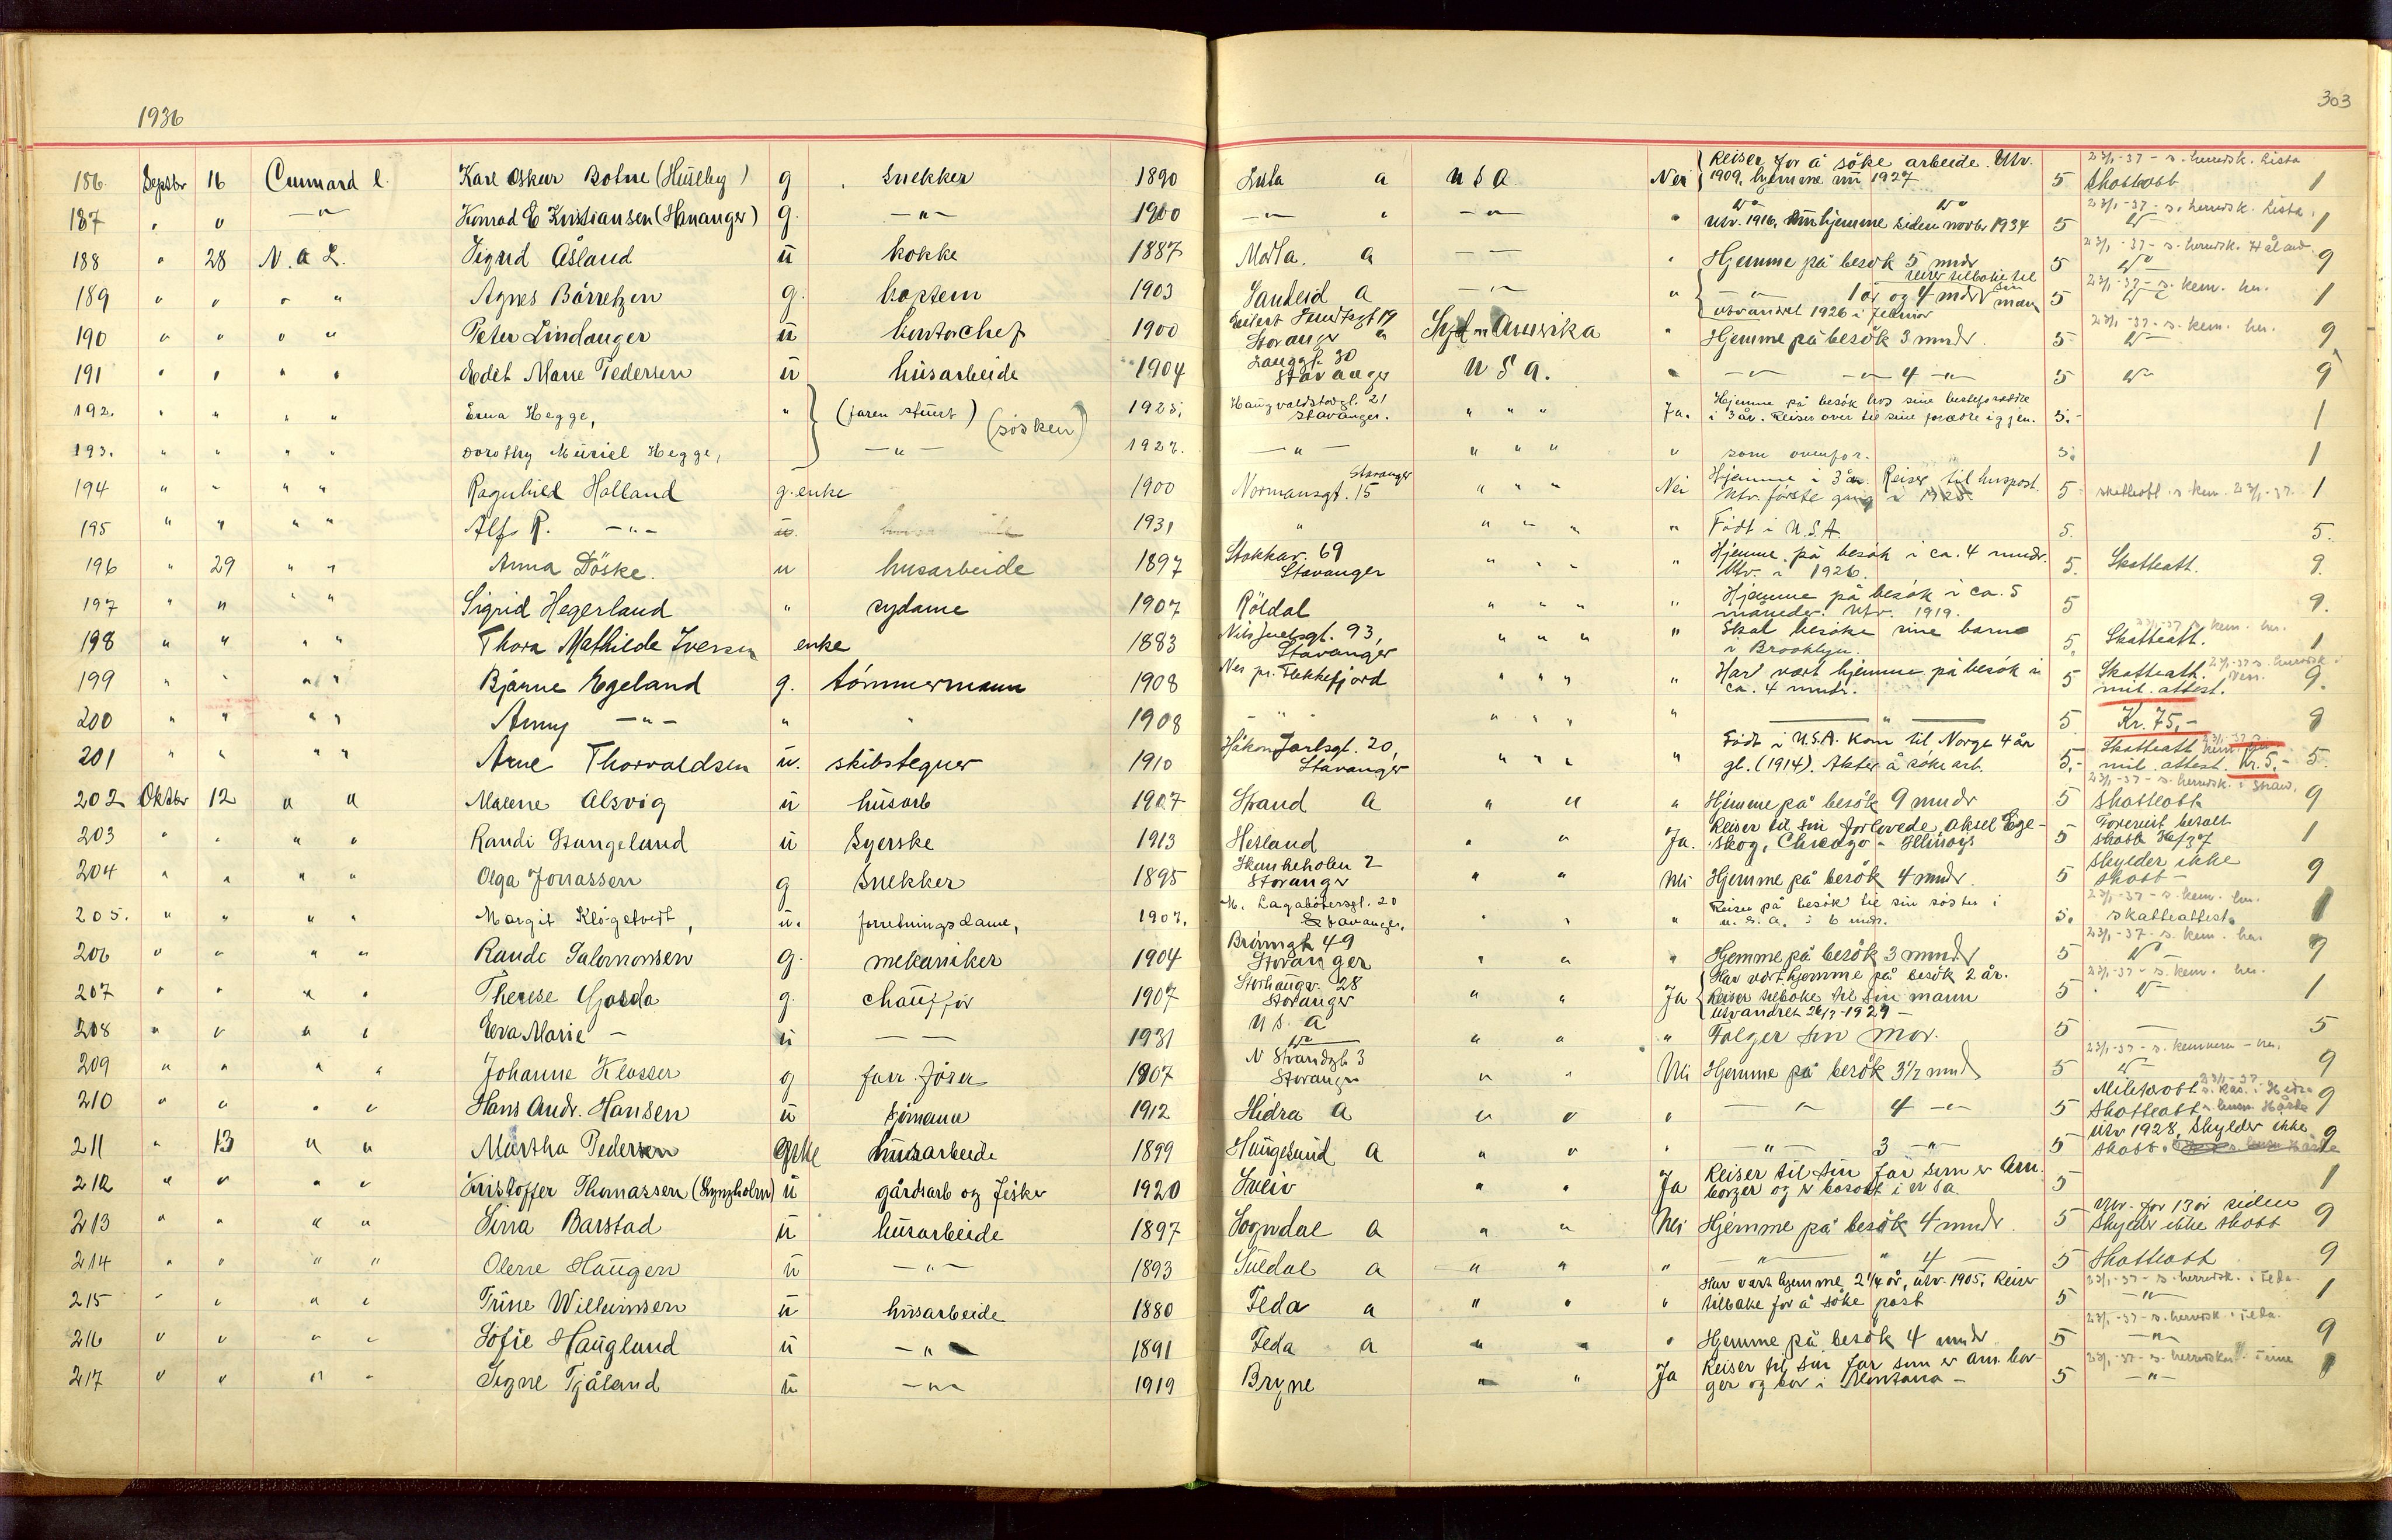 1936
303
186 Septbr 16 Cunnard l. Karl Oskar Botne (Huseby) g snekker 1890 Lista a U S A. Nei Reiser for å søke arbeide. Utv. 1909, hjemme nu 1927 5 23/1-37 - s. herredsk. Lista Skatteatt 1
187 " " -"- Konrad E Kristiansen (Hananger) g. -"- 1900 -"- " -"- " Utv. 1916, hjemme siden novbr 1934 5 23/1-37 - s. herredsk. Lista. 1
188 " 28 N. A L. Sigrid Åsland u kokke 1887 Mosta. a -- " Hjemme på besøk 5 mndr 5 23/1-37 - s. herredsk. Håland 9
189 " " " " Agnes Børretzen g. kaptein 1903 Sandeid a -"- " -"- 1 år og 4 mndr reiser tilbake til sin man utvandret 1926 i februar 5 23/1-37 - s. kem. her. 1
190 " " " " Peter Lindanger u kontorchef 1900 Eilert Sundtsgt 19 Stavanger a Syd-Amerika " Hjemme på besøk 3 mndr. 5 23/1-37 - s. kem. her. 9
191 " " " " Edit Marie Pedersen u husarbeide 1904 Langgt. 30 Stavanger U S A. " -"- -"- 4 -"- 5 9
192. " " " " Erna Hegge, " (faren stuert) (søsken) 1925. Haugvaldstadgt. 21 Stavanger. " " " Ja. Hjemme på besøk hos sine besteforældre i 3 år. Reiser over til sine forældre igjen. 5.- 1
193. " " " " Dorothy Muriel Hegge, -"- 1927. -"- " " " " som ovenfor. 5. 1
194 " " " " Ragnhild Holland g. enke 1900 Normansgt. 15 Stavanger " " " Nei Hjemme i 3 år. Reiser til huspost. Utv. første gang i 1925 5 skatteatt. s kem. 23/1-37. 1
195 " " " " Alf R. -"- u. 1931 " " " " " Født i U.S.A 5. 5.
196 " 29 " " Anna Döske. u husarbeide 1897 Stokkav. 69 Stavanger " " " " Hjemme på besøk i ca. 4 mndr. Utv. i 1926. 5. Skatteatt. 9.
197 " " " " Sigrid Hegerland " sydame 1907 Röldal " " " " Hjemme på besøk i ca. 5 måneder. Utv. 1919. 5 9.
198 " " " " Thora Mathilde Iversen enke 1883 Nils Juelsgt. 93, Stavanger " " " " Skal besøke sine barn i Brooklyn. 5. 23/1-37 s kem. her. Skatteatt. 1
199 " " " " Bjarne Egeland g. tømmermann 1908 Nes pr. Flekkefjord " " " " Har vært hjemme på besøk i ca. 4 mndr. 5 Skatteatt. 23/1-37 s. herredsk i Nes. mil. attest. 9.
200 " " " " Anny -"- " " 1908 " " " " " " —"— 5 Kr. 75,- 9
201 " " " " Arne Thorvaldsen u. skibstegner 1910 Håkon Jarlsgt. 20, Stavanger " " " " Født i U.S.A. Kom til Norge 4 år gl. (1914). Akter å søke arb. 5,- Skatteatt 23/1-37 s. kem. her mil. attest. Kr. 5,- 5.
202 Oktbr 12 " " Malene Alsvig u husarb 1907 Strand a " " " Hjemme på besøk 9 mndr 5 23/1-37 - s. herredsk. i Strand. Skatteatt 9
203 " " " " Randi Stangeland u Syerske 1913 Hetland " " Ja. Reiser til sin forlovede, Aksel Egeskog, Chicago - Illinois 5 Forereist betalt skatt 36/37 1
204 " " " " Olga Jonassen g snekker 1895 Skankeholen 2 Stavanger " " Nei Hjemme på besøk 4 mndr. 5 Skylder ikke skatt - 9
205. " " " " Margit Kløgetvedt, u. forretningsdame, 1907. M. Lagabøtersgt. 20 Stavanger. " " " Reiser på besøk til sin søster i U. S. A. i 6 mndr. 5. 23/1-37 - s. kem. her. skatteattest. 1
206 " " " " Randi Salomonsen g. mekaniker 1904 Brönngt 49 Stavanger " " " Hjemme på besøk 3 mndr 5 23/1-37 - s. kem. her. 9
207 " " " " Therese Gjosda g. chauffør 1907 Storhaugv. 28 Stavanger " " Ja Har vært hjemme på besøk 2 år. Reiser tilbake til sin mann utvandret 26/7-1929 - 5 23/1-37 - s. kem. her. 1
208 " " " " Eva Marie - u -- 1931 U S. A " " " Følger sin mor. 5 — 5
209 " " " " Johanne Klosser g farr. før. 1907 N Strandgt 3 Stavanger " " Nei Hjemme på besøk 3 1/2 mnd 5 23/1-37 - s. kemneren - her. 9
210 " " " " Hans Andr. Hansen u sjömann 1912 Hidra a " " " -"- 4 -"- 5 Skatteatt 9
211 " 13 " " Martha Pedersen enke husarbeide 1899 Haugesund a " " " -"- 3 -"- 5 Utv 1928, skylder ikke skatt. 9
212 " " " " Kristoffer Thomassen (Lyngholm) u gårdsarb og fisker 1920 Sveio " " Ja Reiser til sin far som er Am. borger og er bosatt i U S A 5 1
213 " " " " Sina Barstad u husarbeide 1897 Sogndal a " " Nei Hjemme på besøk 4 mndr. 5 Utv. for 13 år siden skylder ikke skatt 9
214 " " " " Olene Haugen u -"- 1893 Suldal a " " " -"- " 4 — 5 Skatteatt 9
215 " " " " Trine Willumsen u husarbeide 1880 Feda a " " " Har vært hjemme 2 1/4 år, utv. 1905, Reiser tilbake for å søke post 5 23/1-37 - s. herredsk. i Feda. -"- 1
216 " " " " Sofie Haugland u -"- 1891 Feda a " " " Hjemme på besøk 4 mndr 5 23/1-37 - s. herredsk. i Feda. -"- 9
217 " " " " Signe Tjåland u -"- 1919 Bryne " " Ja Reiser til sin far som er Am. borger og bor i Montana - 5 23/1-37 - s. herredsk. i Time -"- 1